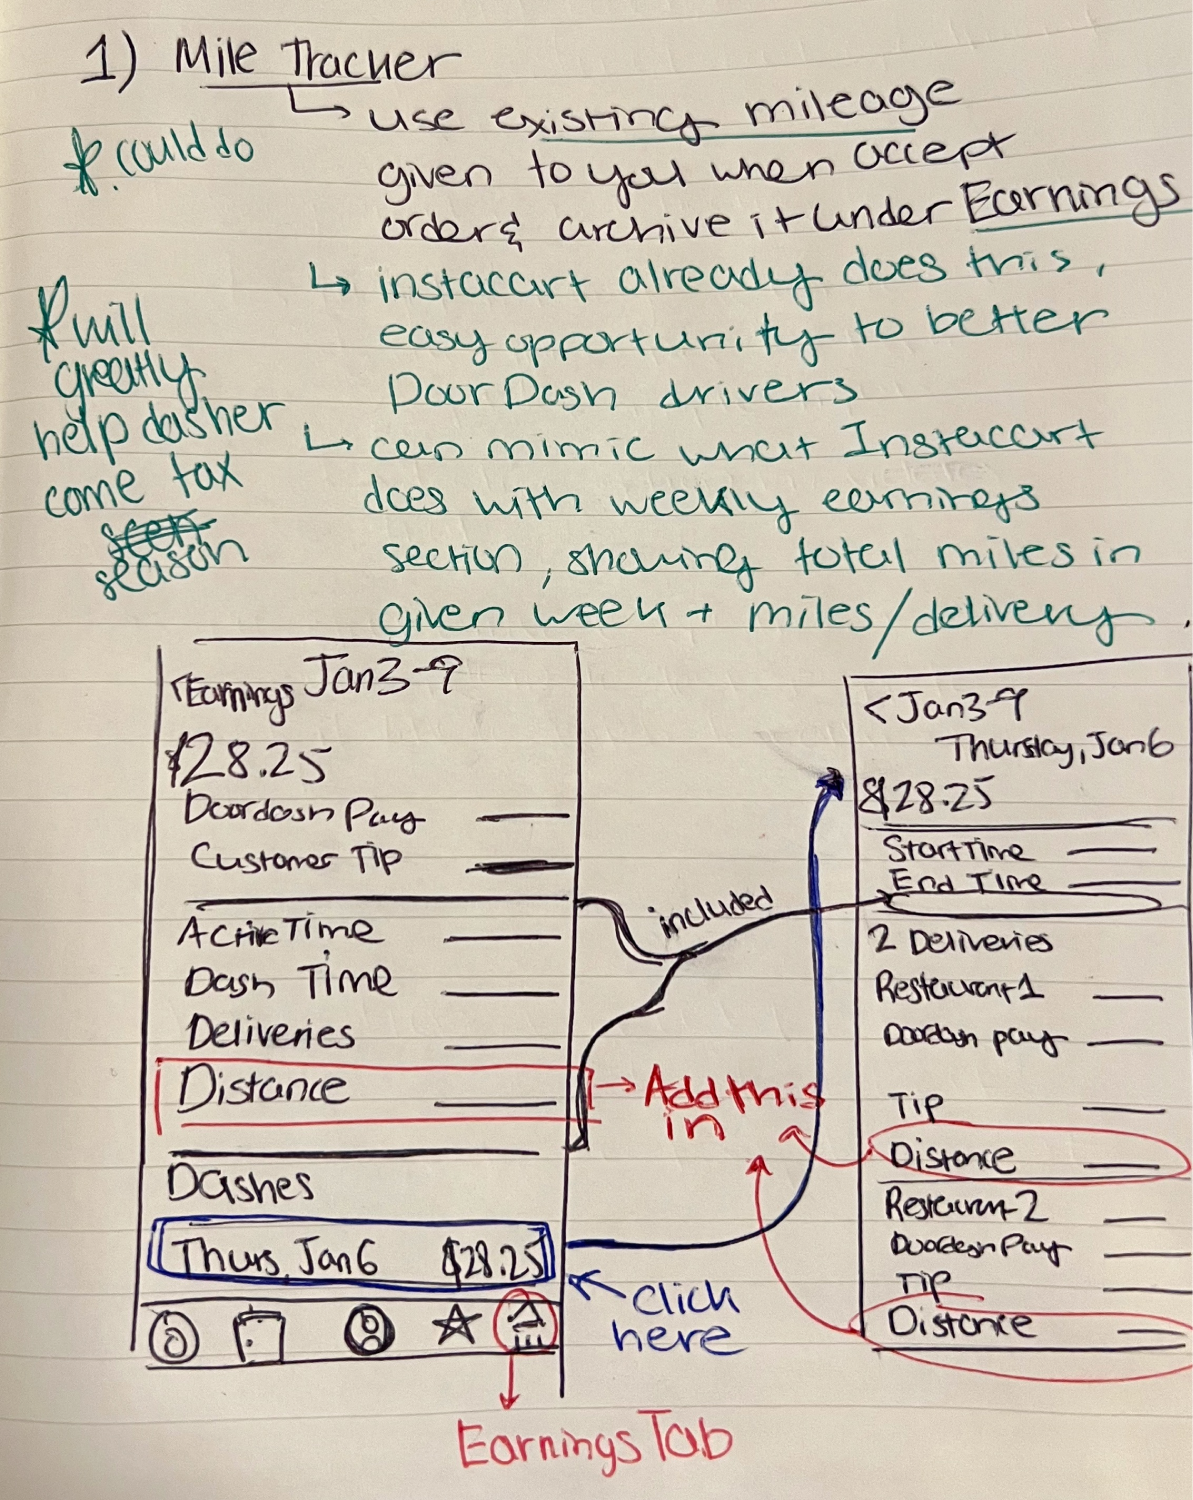 1) Mile Tracker
↳ use existing mileage
given to you when accept
order & archive it under Earnings
* could do
↳ instaccart already does this,
easy opportunity to better
DoorDash drivers
* will
greatly
help dasher
come tax
season
↳ can mimic what Instaccart
does with weekly earnings
section, showing total miles in
given week + miles/delivery.
< Earnings Jan 3-9
$28.25
Doordash Pay
Customer Tip
Active Time
Dash Time
Deliveries
Distance
Dashes
Thurs, Jan 6 $28.25
included
→ Add this
in
click
here
Earnings Tab
< Jan 3-9
Thursday, Jan 6
$28.25
Start Time
End Time
2 Deliveries
Restaurant 1
Doordash pay
Tip
Distance
Restaurant 2
Doordash Pay
Tip
Distance